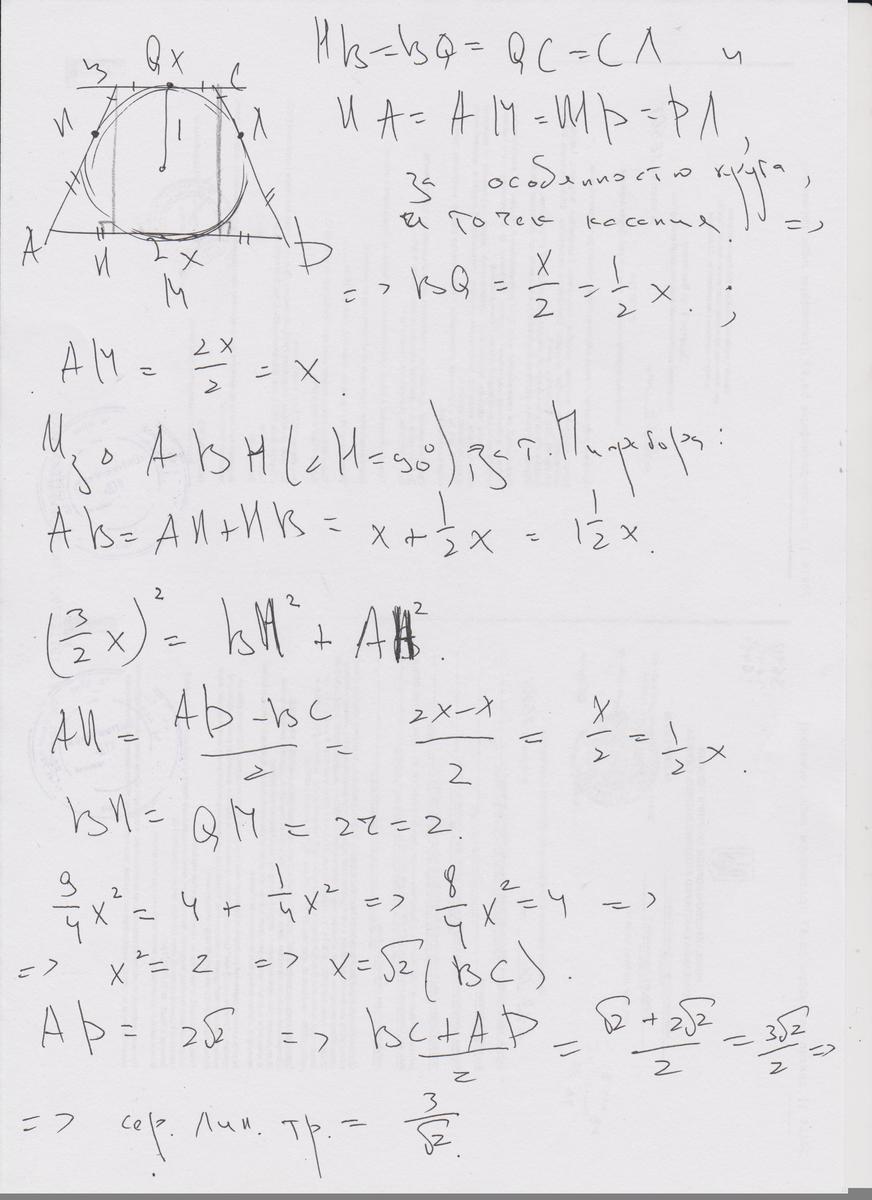 Q X
B C
И Л
1
A И 2 X D
M
ИB = BQ = QC = CЛ и
ИA = AM = MD = DЛ,
за особенностю круга,
и точек касания. =>
=> BQ = x/2 = 1/2 x. ;
AM = 2x/2 = x.
Из △ ABH (∠H = 90°) за т. Пифагора:
AB = AИ + ИB = x + 1/2 x = 1 1/2 x.
(3/2 x)² = BH² + AH².
AH = (AD - BC)/2 = (2x - x)/2 = x/2 = 1/2 x.
BH = QM = 2r = 2.
9/4 x² = 4 + 1/4 x² => 8/4 x² = 4 =>
=> x² = 2 => x = √2 (BC).
AD = 2√2 => (BC + AD)/2 = (√2 + 2√2)/2 = 3√2/2 =>
=> сер. лин. тр. = 3/√2.